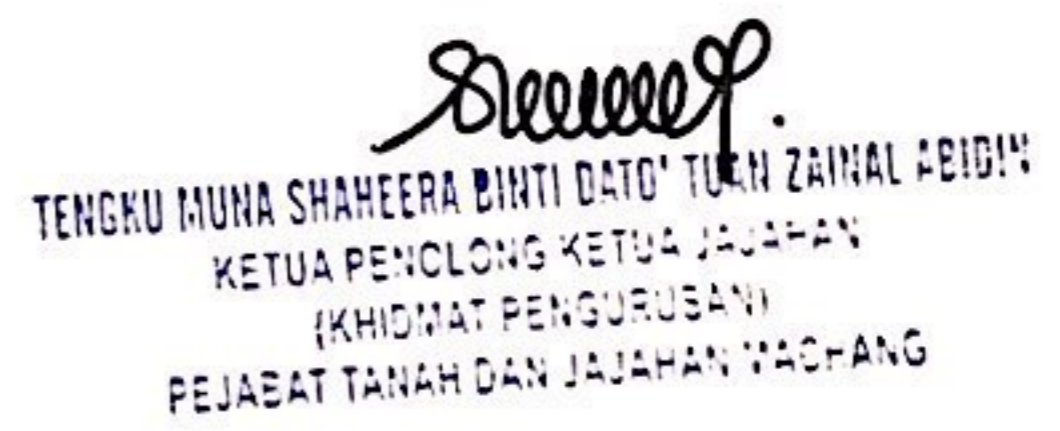 TENGKU MUNA SHAHEERA BINTI DATO' TUAN ZAINAL ABIDIN
KETUA PENOLONG KETUA JAJAHAN
(KHIDMAT PENGURUSAN)
PEJABAT TANAH DAN JAJAHAN MACHANG